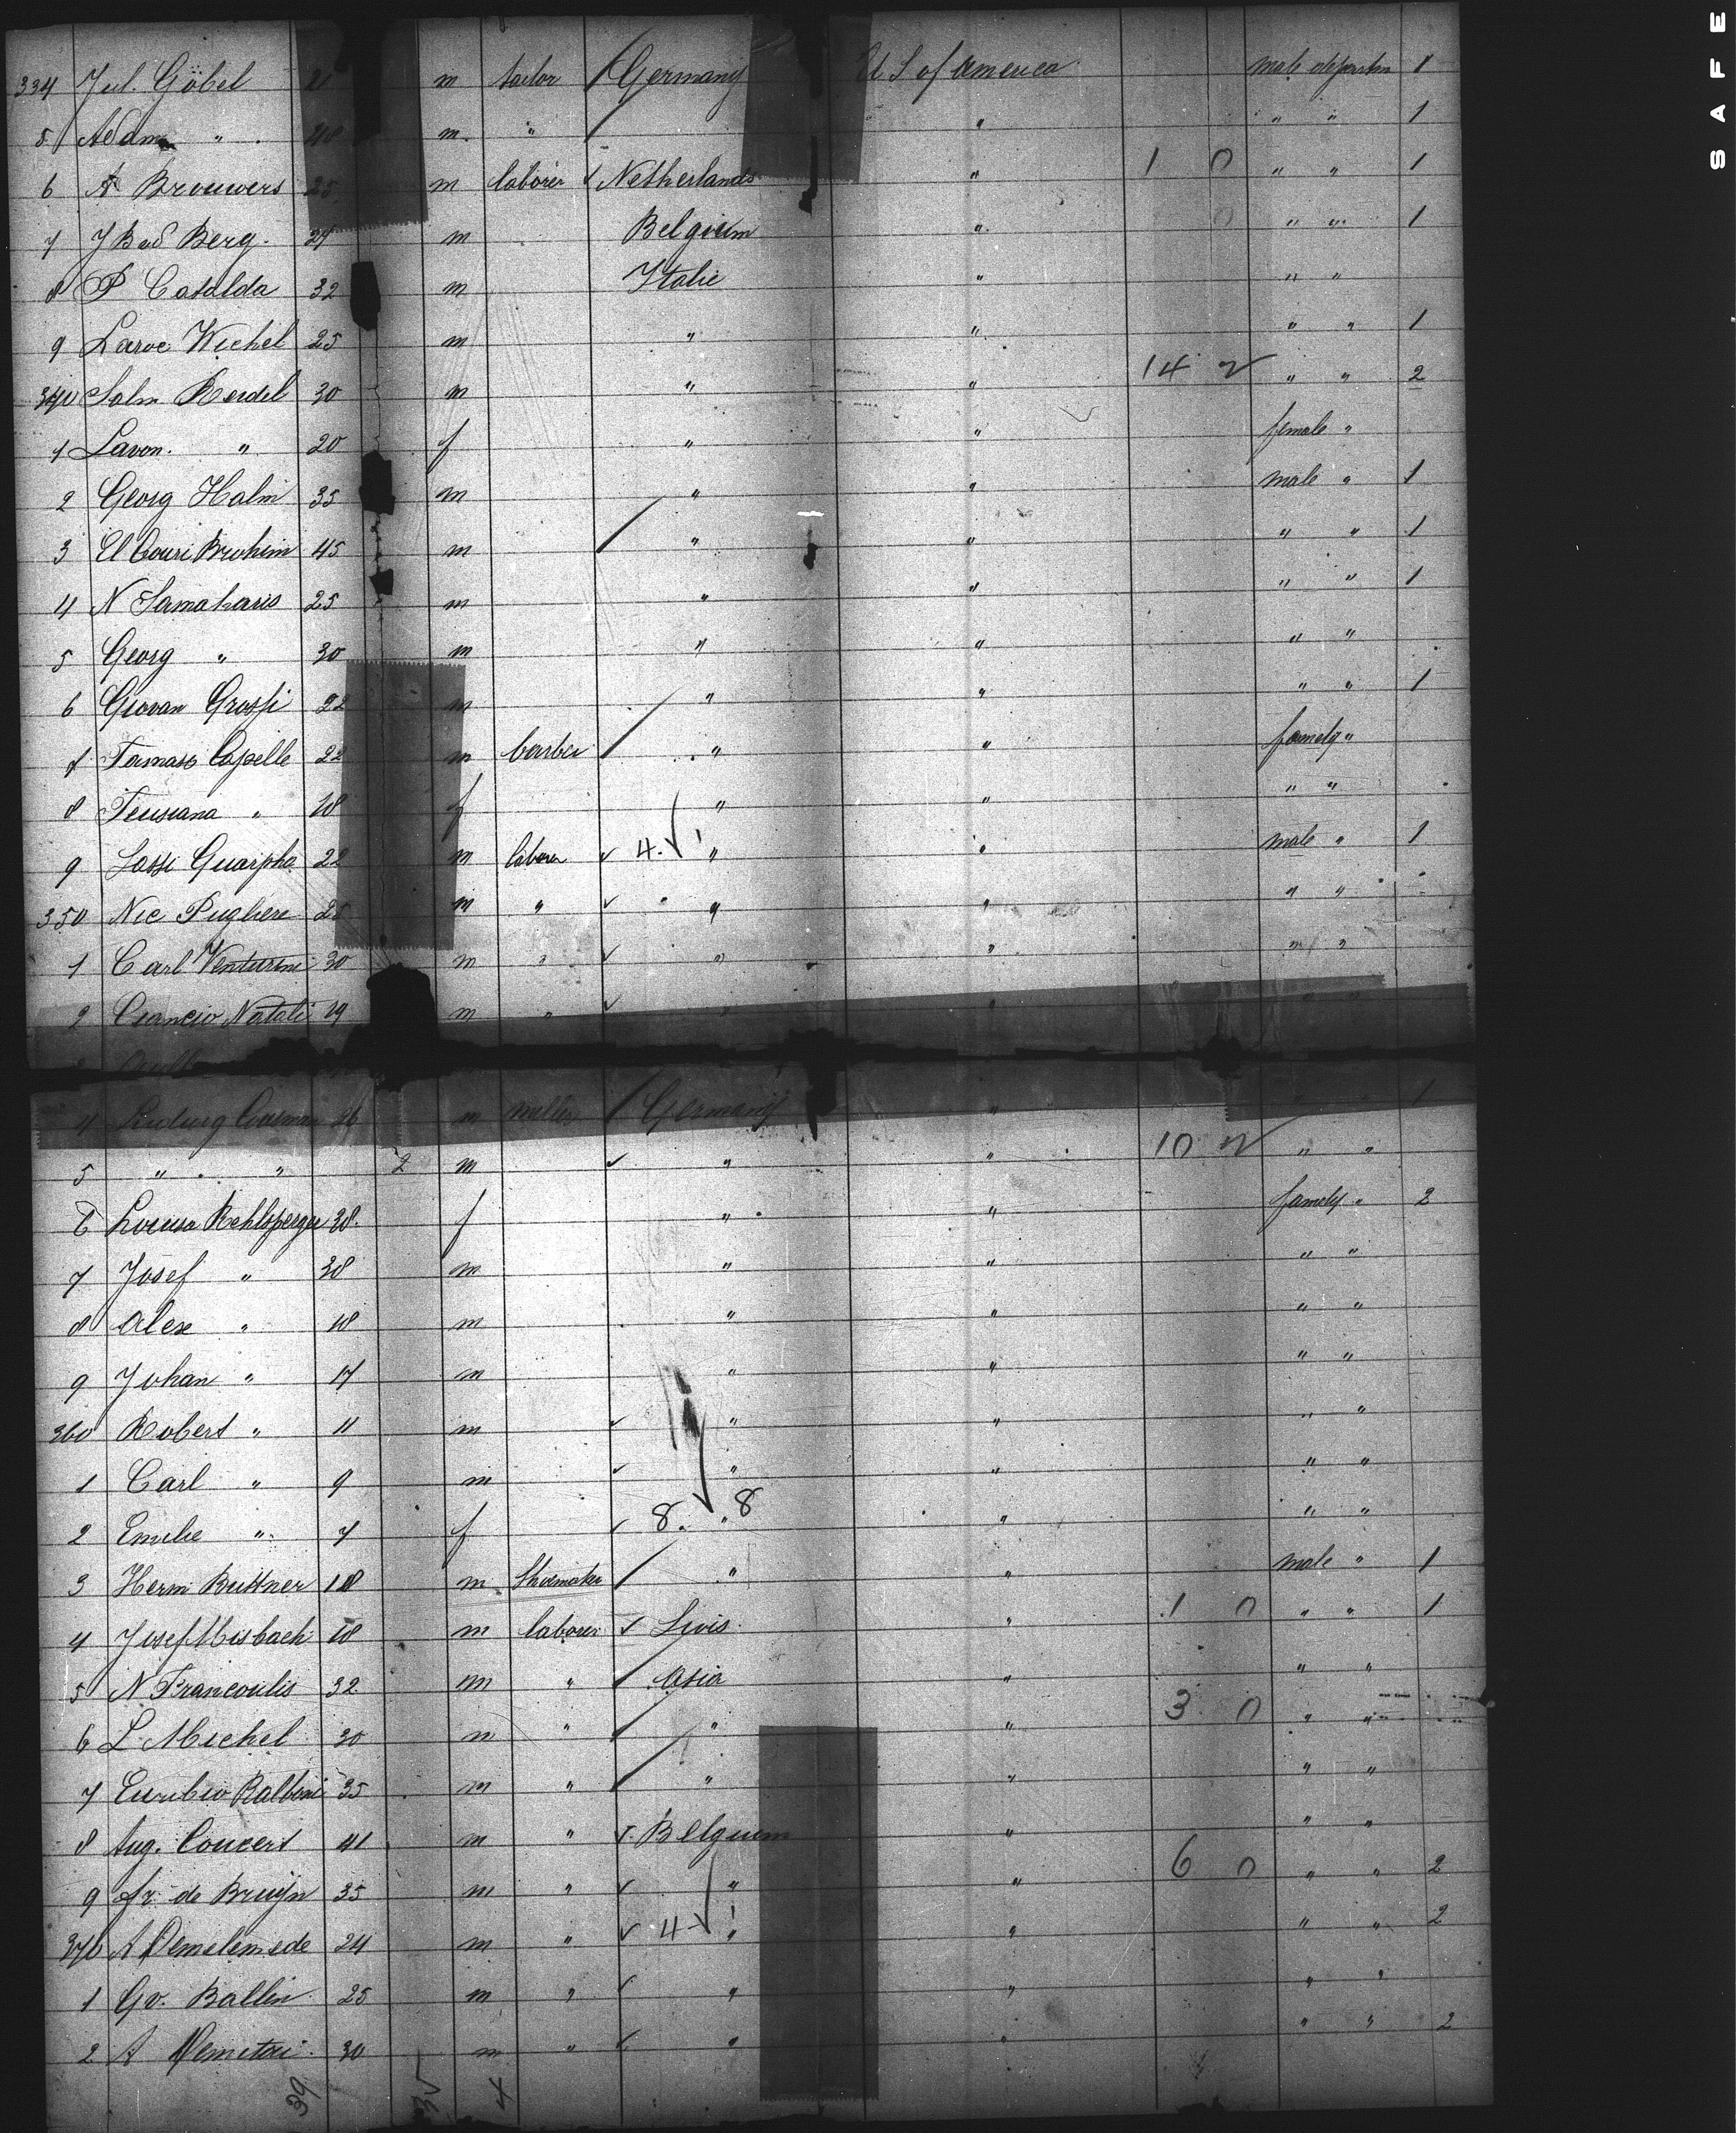 334 Jul. Göbel 21 m tailor Germany U S of America male departm 1
5 Adam " 48 m " " " " 1
6 A Brouwers 25 m laborer Netherlands " 1 0 " " 1
7 J Bad Berg. 27 m Belgium " 0 " " 1
8 P Catalda 32 m Italie " " "
9 Larve Wichel 25 m " " " " 1
340 Salm Reidel 30 m " " 14 " " 2
1 Lavon. " 20 f " " female "
2 Georg Halm 35 m " " male " 1
3 El Couri Brohim 45 m " " " " 1
4 N Samaharis 25 m " " " " 1
5 Georg " 30 m " " " "
6 Giovan Grossi 22 m " " " " 1
7 Tomaso Capelle 22 m barber " " famely "
8 " 18 f " " " "
9 Sassi Guarpha 22 m laborer 4. " " male " 1
350 Nic Pugliere 25 m " " " " "
1 Carl Venturini 30 m " " " " "
2 Ciancio Natali 19 m "
4 Ludwig 26 m miller Germany " " " 1
5 " " 2 m " " 10 " "
6 Louisa Rehlsperger 38. f " " famely " 2
7 Josef " 38 m " " " "
8 Alex " 18 m " " " "
9 Johan " 17 m " " " "
360 Robert " 11 m " " " "
1 Carl " 9 m " " " "
2 Emilie " 7 f 8. " 8 " " "
3 Herm Büttner 18 m Shoemaker " " male " 1
4 Josef Misbach 18 m laborer Swis. " 1 0 " " 1
5 N Francoulis 32 m " Asia " " "
6 L Michel 30 m " " " 3 0 " "
7 Eusibio Balboni 35 m " " " " "
8 Aug. Coucert 41 m " Belgium " " "
9 Fr. de Bruijn 35 m " " " 6 0 " " 2
370 A Demelemede 24 m " 4 " " " " 2
1 Gv. Ballin 25 m " " " " "
2 A Demetri 30 m " " " " " 2
39 3 4
SAFE